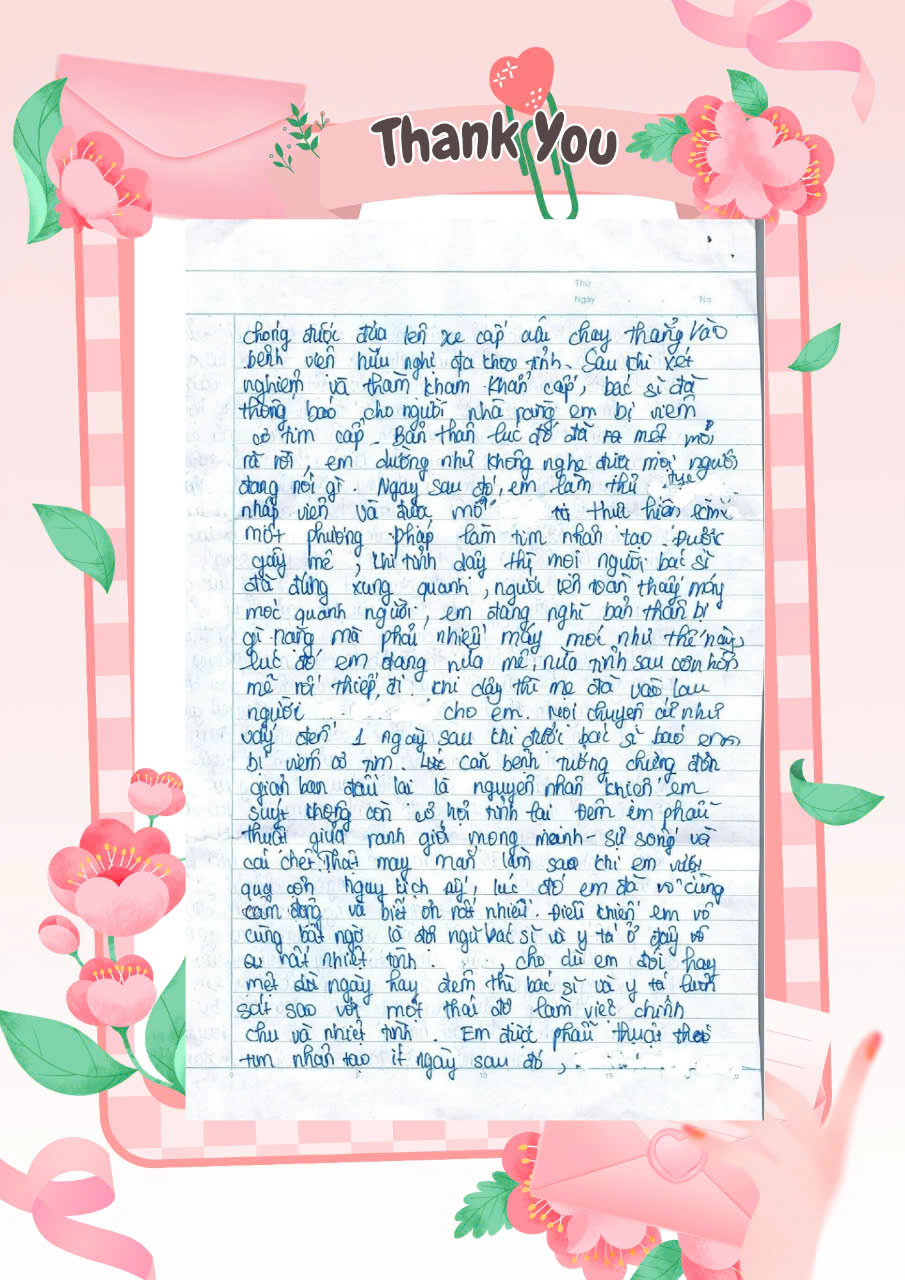 Thank You
Thứ
Ngày No
chóng được đưa lên xe cấp cứu chạy thẳng vào
bệnh viện hữu nghị đa khoa tỉnh. Sau khi xét
nghiệm và thăm khám khẩn cấp, bác sĩ đã
thông báo cho người nhà rằng em bị viêm
cơ tim cấp. Bản thân lúc đó đã mệt mỏi
rã rời, em dường như không nghe được mọi người
đang nói gì. Ngay sau đó, em làm thủ tục
nhập viện và được mổ thực hiện
một phương pháp làm tim nhân tạo. Được
gây mê, khi tỉnh dậy thì mọi người bác sĩ
đã đứng xung quanh, người lên toàn thấy máy
móc quanh người, em đang nghĩ bản thân bị
gì nặng mà phải nhiều máy móc như thế này,
lúc đó em đang nửa mê, nửa tỉnh sau cơn hôn
mê rồi thiếp đi. Khi dậy thì mẹ đã vào lau
người cho em. Mọi chuyện cứ như
vậy đến 1 ngày sau khi được bác sĩ báo em
bị viêm cơ tim. Lúc căn bệnh tưởng chừng đơn
giản ban đầu lại là nguyên nhân khiến em
suýt không còn cơ hội tỉnh lại. Đêm em phẫu
thuật giữa ranh giới mong manh - sự sống và
cái chết. Thật may mắn làm sao khi em vượt
qua cơn nguy kịch ấy, lúc đó em đã vô cùng
cảm động và biết ơn rất nhiều. Điều khiến em vô
cùng bất ngờ là đội ngũ bác sĩ và y tá ở đây vô
cư rất nhiệt tình, cho dù em đói hay
mệt dù ngày hay đêm thì bác sĩ và y tá luôn
sát sao với một thái độ làm việc chỉnh
chu và nhiệt tình. Em được phẫu thuật
tim nhân tạo ngày sau đó,
0 5 10